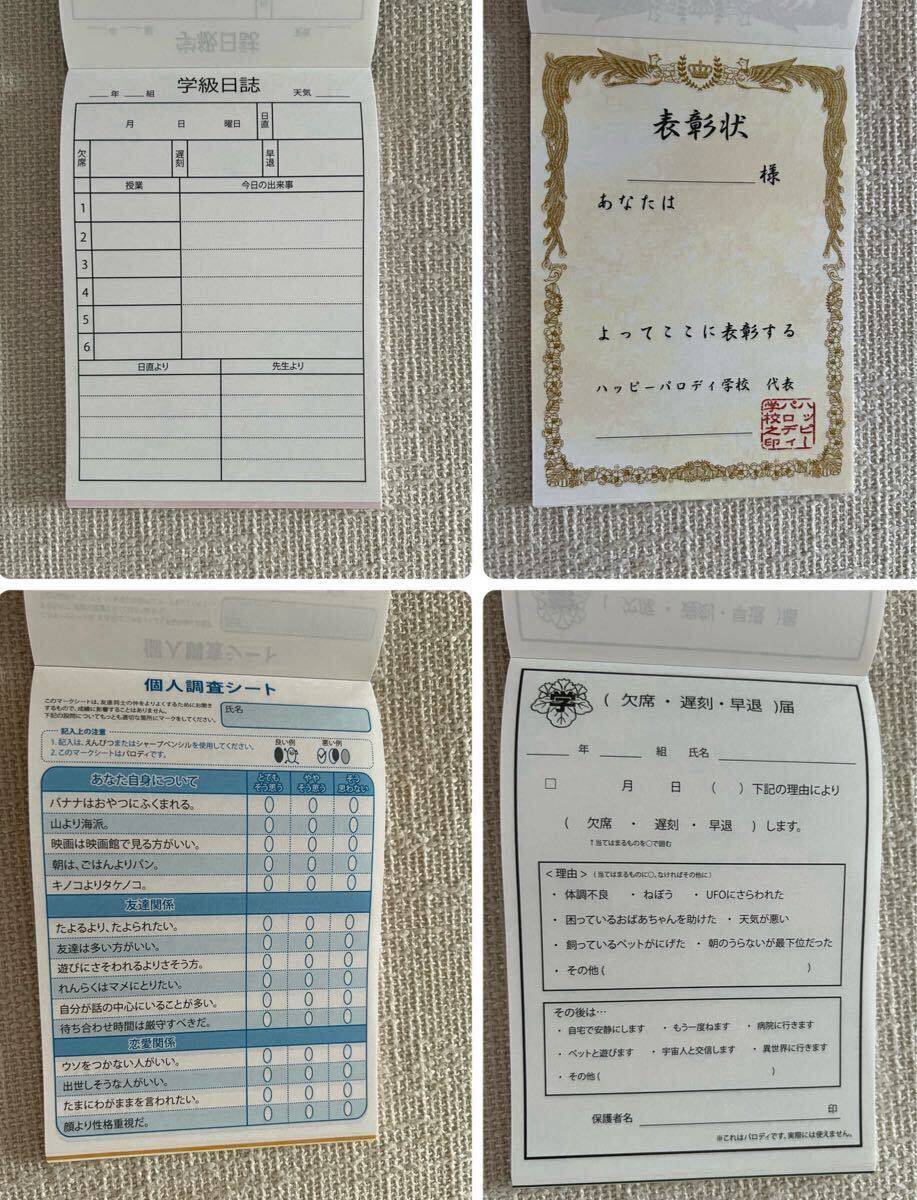 学級日誌
年 組 天気
月 日 曜日 日直
欠席 遅刻 早退
授業 今日の出来事
1
2
3
4
5
6
日直より 先生より
表彰状
様
あなたは
よってここに表彰する
ハッピーパロディ学校 代表
ハッピーパロディ学校之印
個人調査シート
このマークシートは、友達同士の仲をよりよくするためにお聞き
するもので、成績に影響することはありません。
下記の設問についてもっとも適切な箇所にマークをしてください。
氏名
記入上の注意
1. 記入は、えんぴつまたはシャープペンシルを使用してください。
2. このマークシートはパロディです。
良い例 悪い例
あなた自身について とても そう思う やや そう思う そう 思わない
バナナはおやつにふくまれる。
山より海派。
映画は映画館で見る方がいい。
朝は、ごはんよりパン。
キノコよりタケノコ。
友達関係
たよるより、たよられたい。
友達は多い方がいい。
遊びにさそわれるよりさそう方。
れんらくはマメにとりたい。
自分が話の中心にいることが多い。
待ち合わせ時間は厳守すべきだ。
恋愛関係
ウソをつかない人がいい。
出世しそうな人がいい。
たまにわがままを言われたい。
顔より性格重視だ。
学
( 欠席・遅刻・早退 )届
年 組 氏名
□ 月 日 ( ) 下記の理由により
( 欠席 ・ 遅刻 ・ 早退 ) します。
↑当てはまるものを○で囲む
<理由> (当てはまるものに○、なければその他に)
・体調不良 ・ねぼう ・UFOにさらわれた
・困っているおばあちゃんを助けた ・天気が悪い
・飼っているペットがにげた ・朝のうらないが最下位だった
・その他( )
その後は…
・自宅で安静にします ・もう一度ねます ・病院に行きます
・ペットと遊びます ・宇宙人と交信します ・異世界に行きます
・その他( )
保護者名 印
※これはパロディです。実際には使えません。